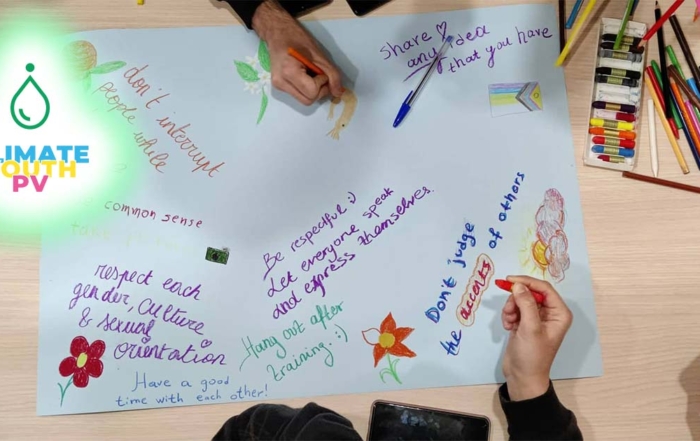 Share ♡
any idea
that you have
don't interrupt
people while
CLIMATE
YOUTH
PV
common sense
Be respectful :)
Let everyone speak
and express themselves.
Don't judge
the accents of others
respect each
gender, culture
& sexual
orientation
Hang out after
training. :)
Have a good
time with each other!